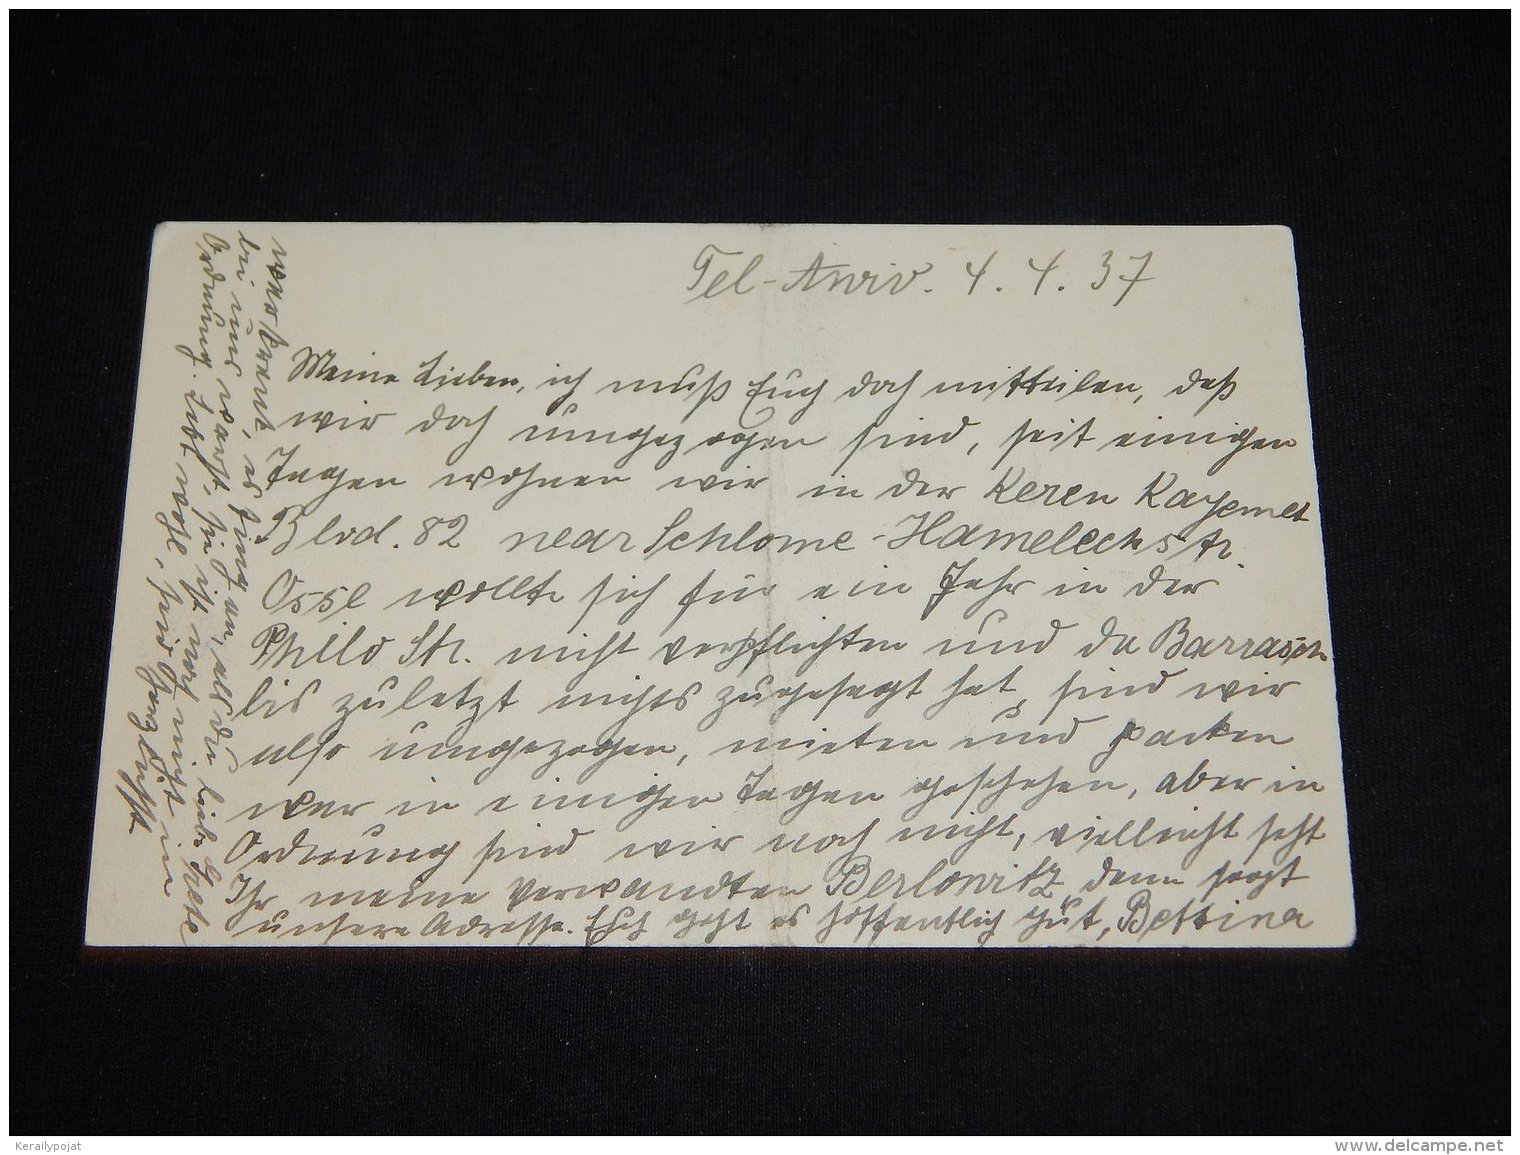 Tel-Awiv. 4. 4. 37
Meine Lieben, ich muß Euch doch mitteilen, daß
wir doch umgezogen sind, seit einigen
Tagen wohnen wir in der Keren Kayemet
Blvd. 82 near Schlome-Hamelechstr.
Osse wollte sich für ein Jahr in der
Philo Str. nicht verpflichten und da Barrasch
bis zuletzt nichts zugesagt hat, sind wir
also umgezogen, mieten und packen
war in einigen Tagen geschehen, aber in
Ordnung sind wir noch nicht, vielleicht seht
Ihr meine Verwandten Berlowitz, dann sagt
unsere Adresse. Euch geht es hoffentlich gut, Bettina
war krank, es fing an, als du liebe Grete
bei uns warst, sie ist noch nicht in
Ordnung. Lebt wohl, seid herzl. gegrüßt
Kerailypojat
www.delcampe.net